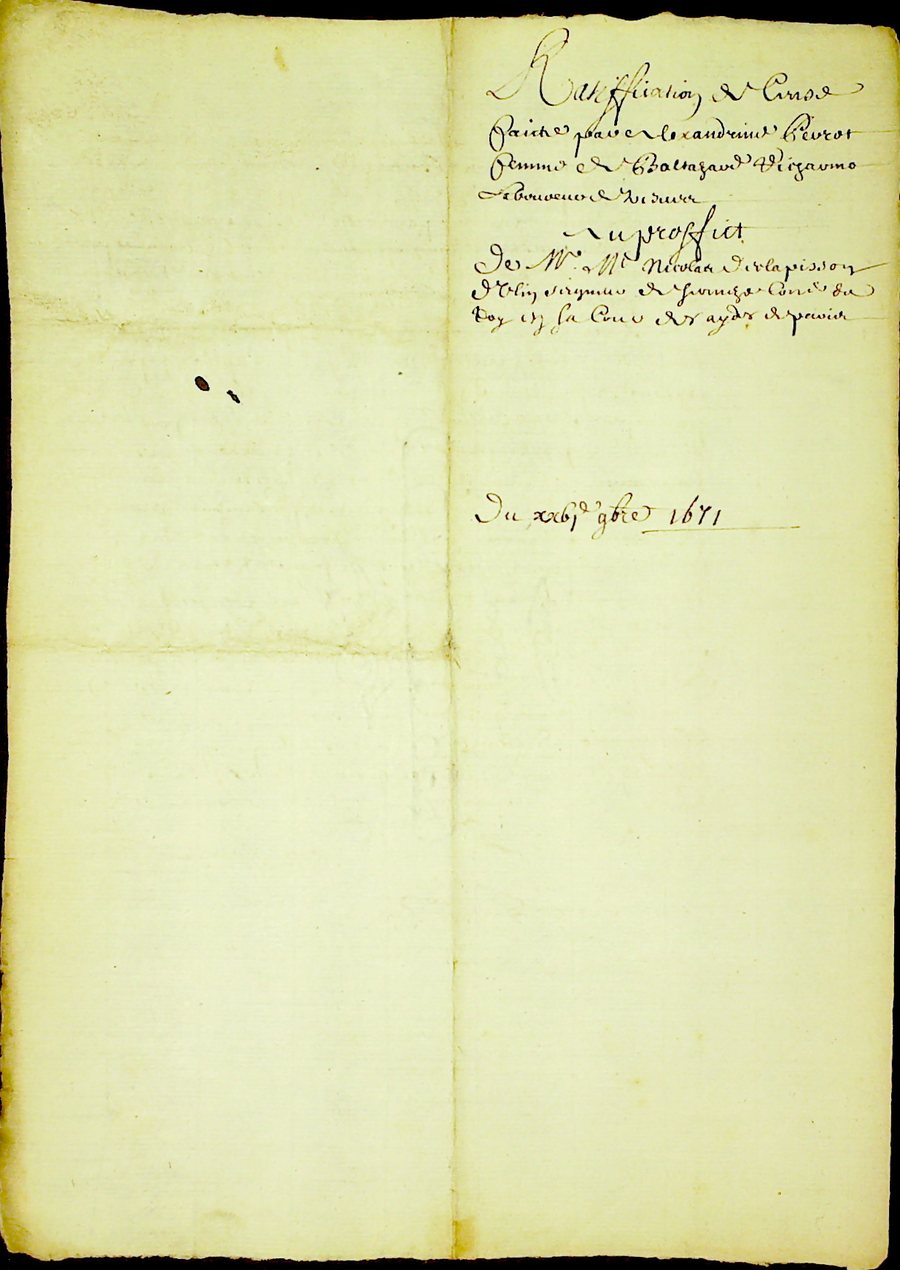 Ratiffication de Cens
faicte par Alexandrine Pierrot
femme de Baltazard Richarme
Laboureur de
Au proffict
De Mre Me Nicolas Delapisson
seigneur de Conr du
Roy en sa Cour des aydes de paris
Du xxbje 9bre 1671